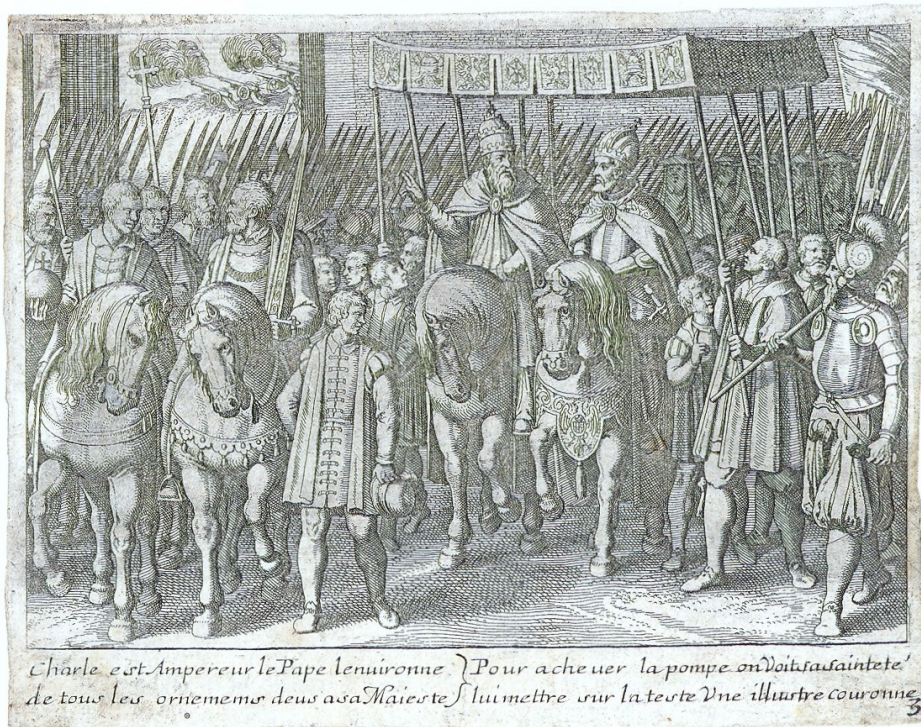 Charle est Ampereur le Pape lenuironne
de tous les ornemems deus a sa Maieste
Pour acheuer la pompe on Voit sa sainteté
lui mettre sur la teste Vne illustre couronne
3